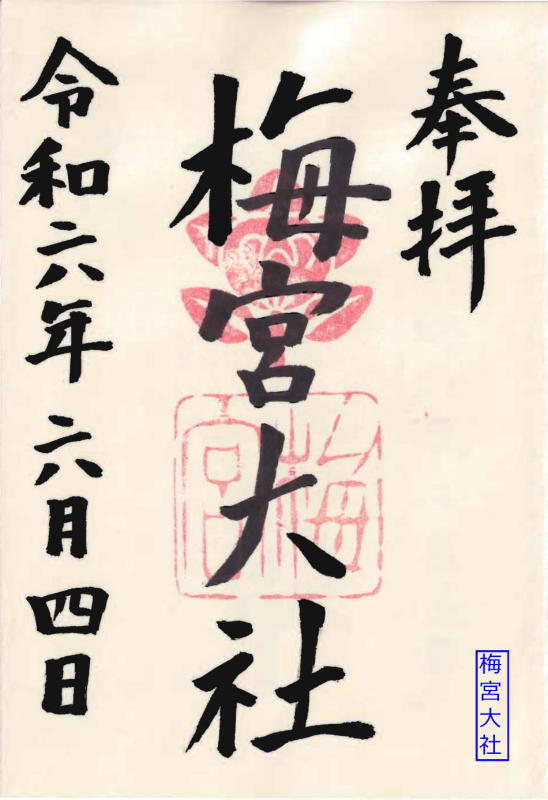 奉拝
梅宮大社
梅宮
令和六年六月四日
梅宮大社